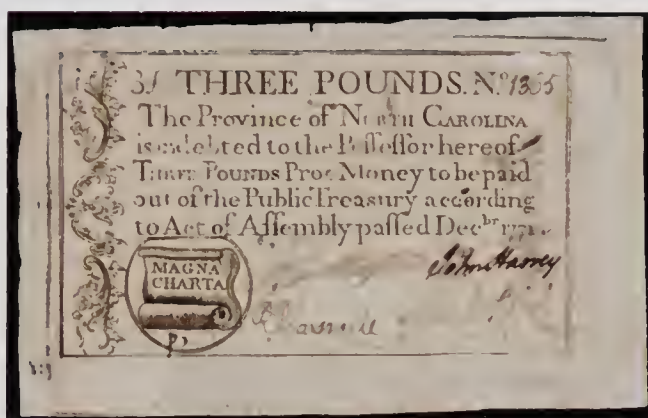 THREE POUNDS. Nº 1355
The Province of NORTH CAROLINA
is indebted to the Poſſeſſor hereof
THREE POUNDS Proc. Money to be paid
out of the Public Treasury according
to Act of Aſſembly paſſed Decbr 1771.
MAGNA
CHARTA
John Harvey